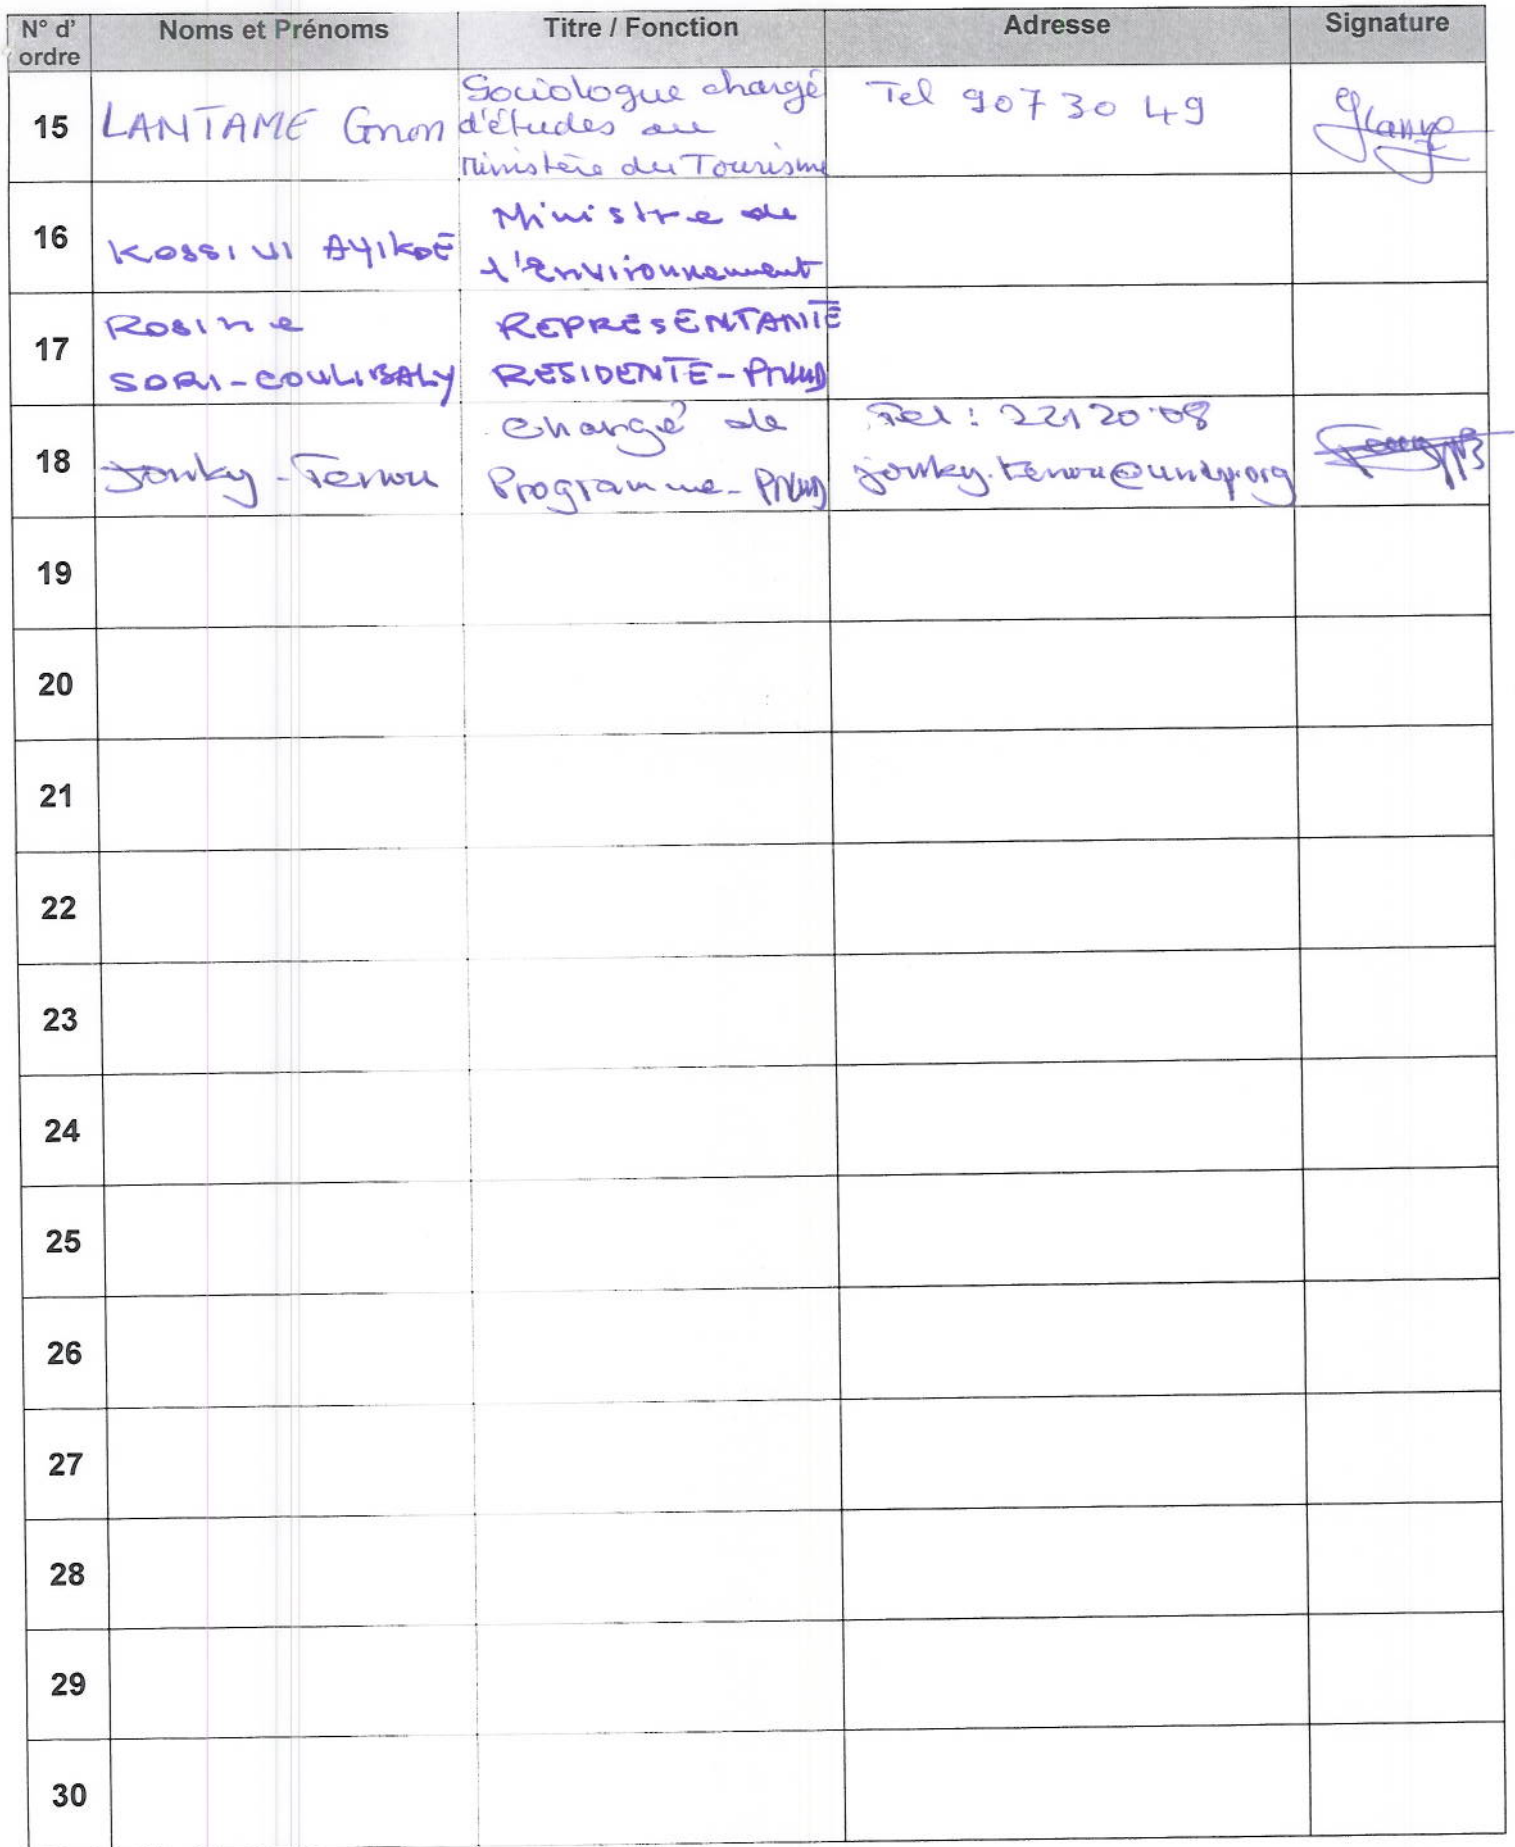 N° d' ordre Noms et Prénoms Titre / Fonction Adresse Signature
15 LANTAME Gnon Sociologue chargé d'études au Ministère du Tourisme Tel 907 30 49
16 KOSSIVI AYIKOE Ministre de l'Environnement
17 Rosine SORI-COULIBALY REPRESENTANTE RESIDENTE-PNUD
18 Jonky-Tenou Chargé de Programme-PNUD Tel : 221 20 08 jonky.tenou@undp.org
19
20
21
22
23
24
25
26
27
28
29
30